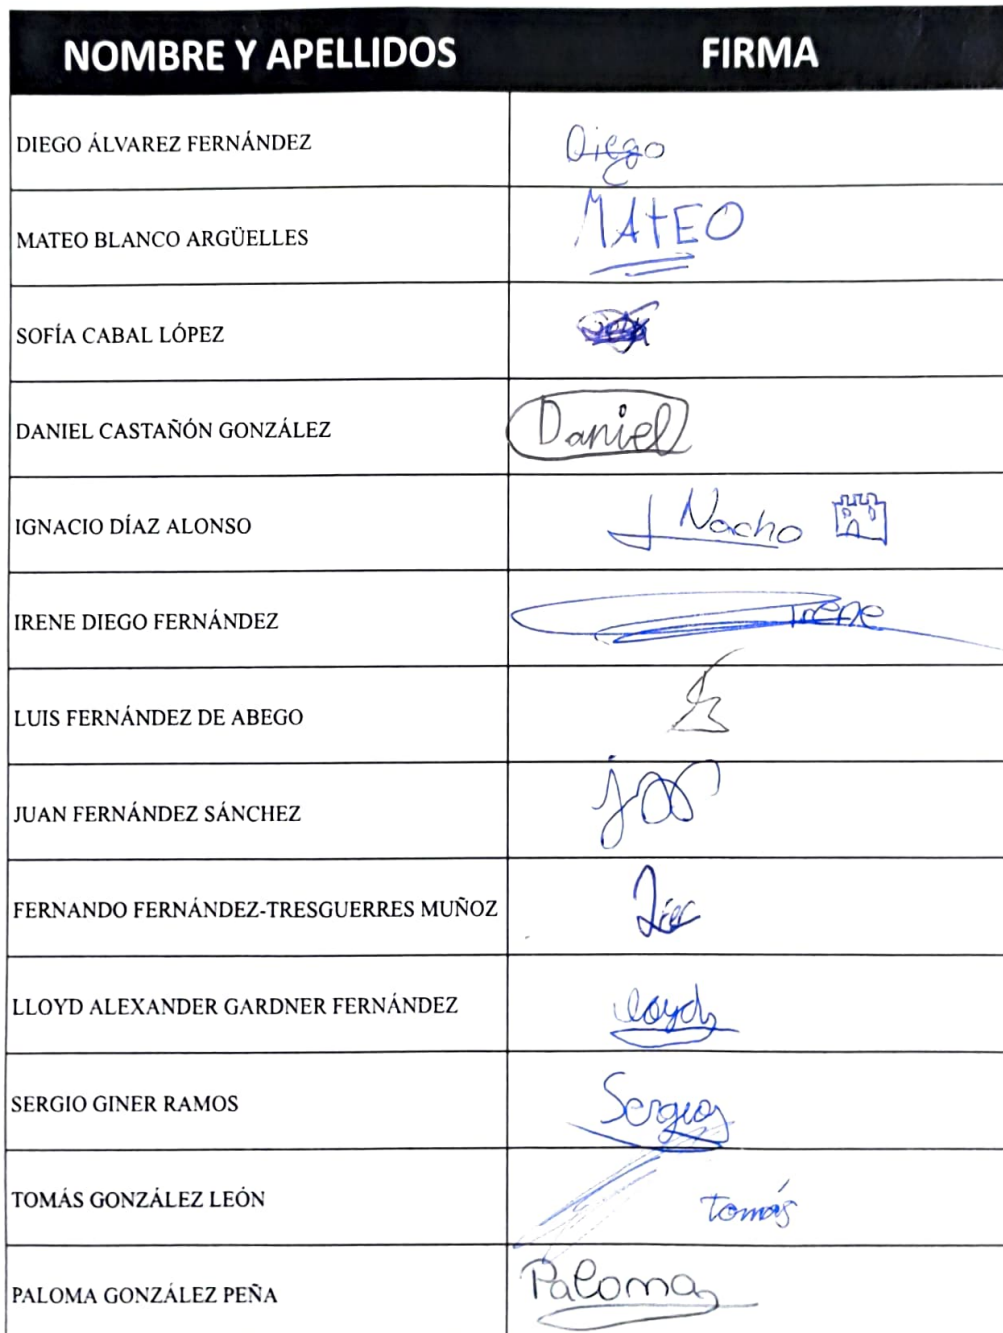 NOMBRE Y APELLIDOS FIRMA
DIEGO ÁLVAREZ FERNÁNDEZ Diego
MATEO BLANCO ARGÜELLES MATEO
SOFÍA CABAL LÓPEZ
DANIEL CASTAÑÓN GONZÁLEZ Daniel
IGNACIO DÍAZ ALONSO Nacho
IRENE DIEGO FERNÁNDEZ Irene
LUIS FERNÁNDEZ DE ABEGO
JUAN FERNÁNDEZ SÁNCHEZ
FERNANDO FERNÁNDEZ-TRESGUERRES MUÑOZ
LLOYD ALEXANDER GARDNER FERNÁNDEZ lloyd
SERGIO GINER RAMOS Sergio
TOMÁS GONZÁLEZ LEÓN tomás
PALOMA GONZÁLEZ PEÑA Paloma